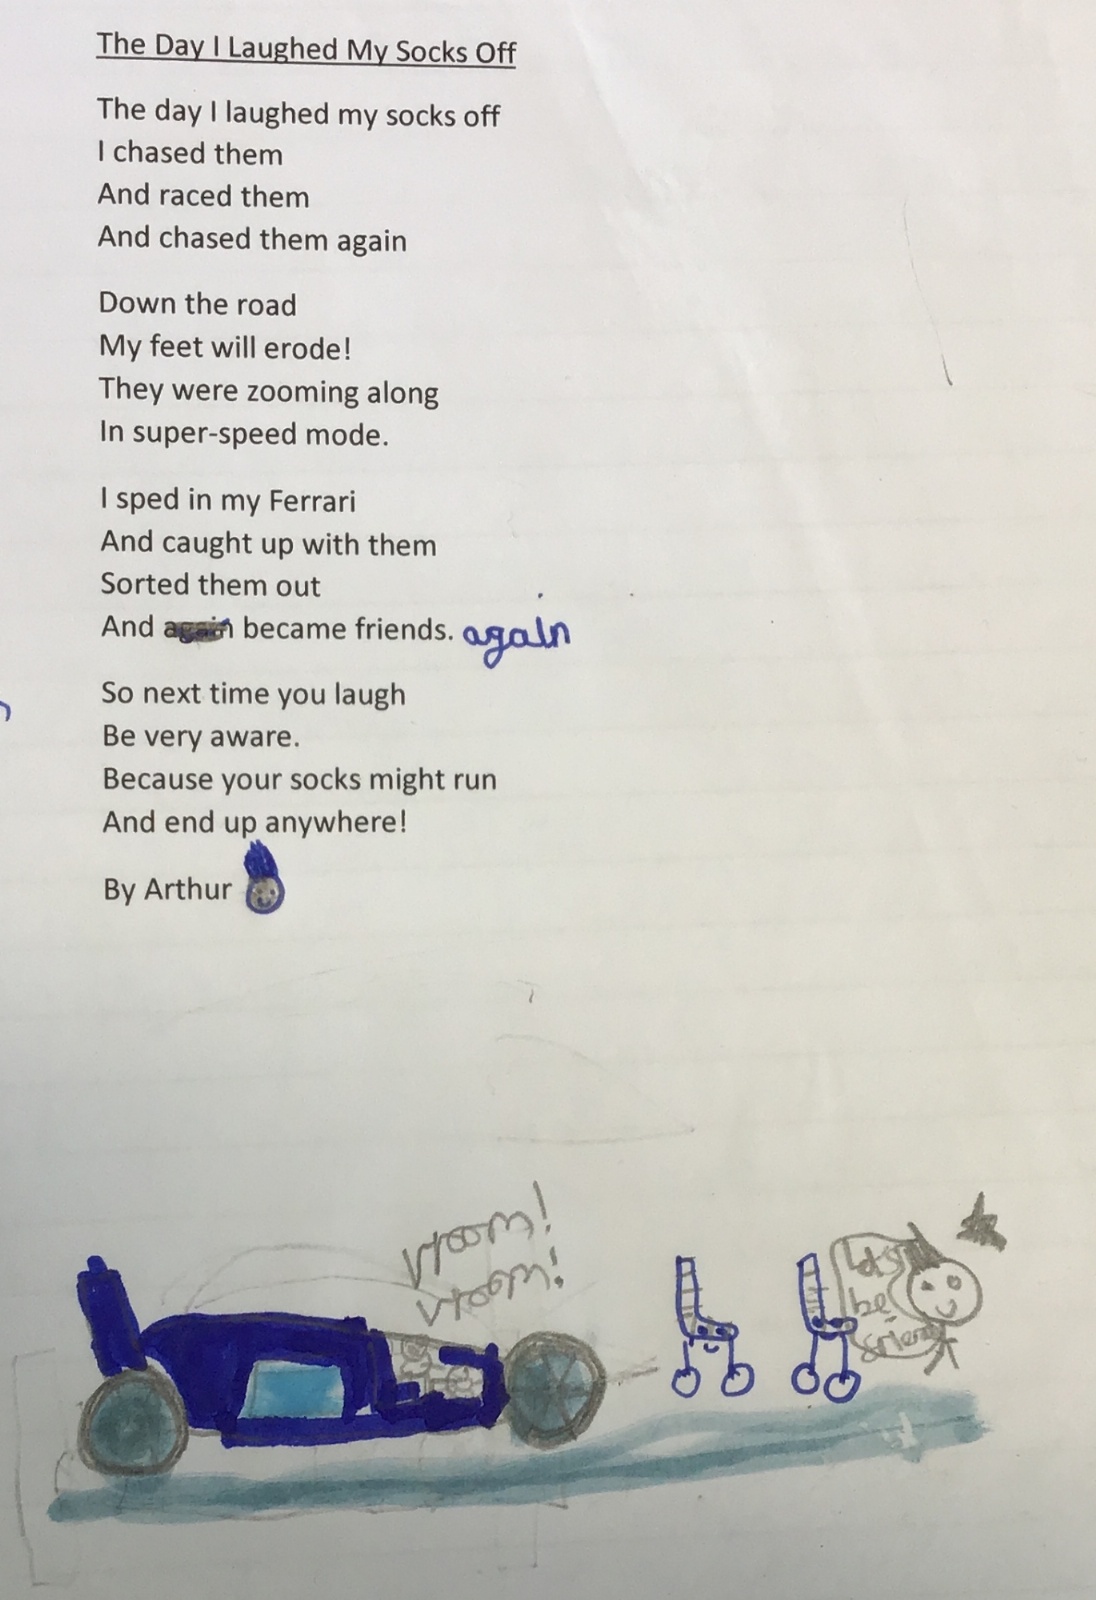 The Day I Laughed My Socks Off
The day I laughed my socks off
I chased them
And raced them
And chased them again
Down the road
My feet will erode!
They were zooming along
In super-speed mode.
I sped in my Ferrari
And caught up with them
Sorted them out
And again became friends. again
So next time you laugh
Be very aware.
Because your socks might run
And end up anywhere!
By Arthur
Vroom!
Vroom!
be